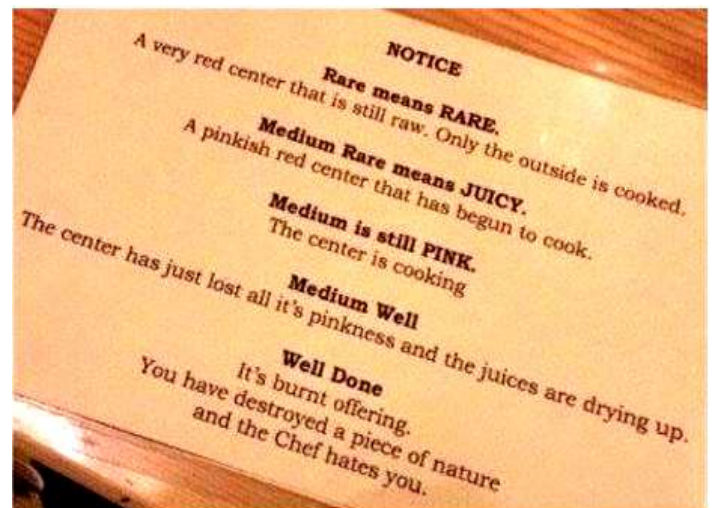 NOTICE
Rare means RARE.
A very red center that is still raw. Only the outside is cooked.
Medium Rare means JUICY.
A pinkish red center that has begun to cook.
Medium is still PINK.
The center is cooking
Medium Well
The center has just lost all it's pinkness and the juices are drying up.
Well Done
It's burnt offering.
You have destroyed a piece of nature
and the Chef hates you.